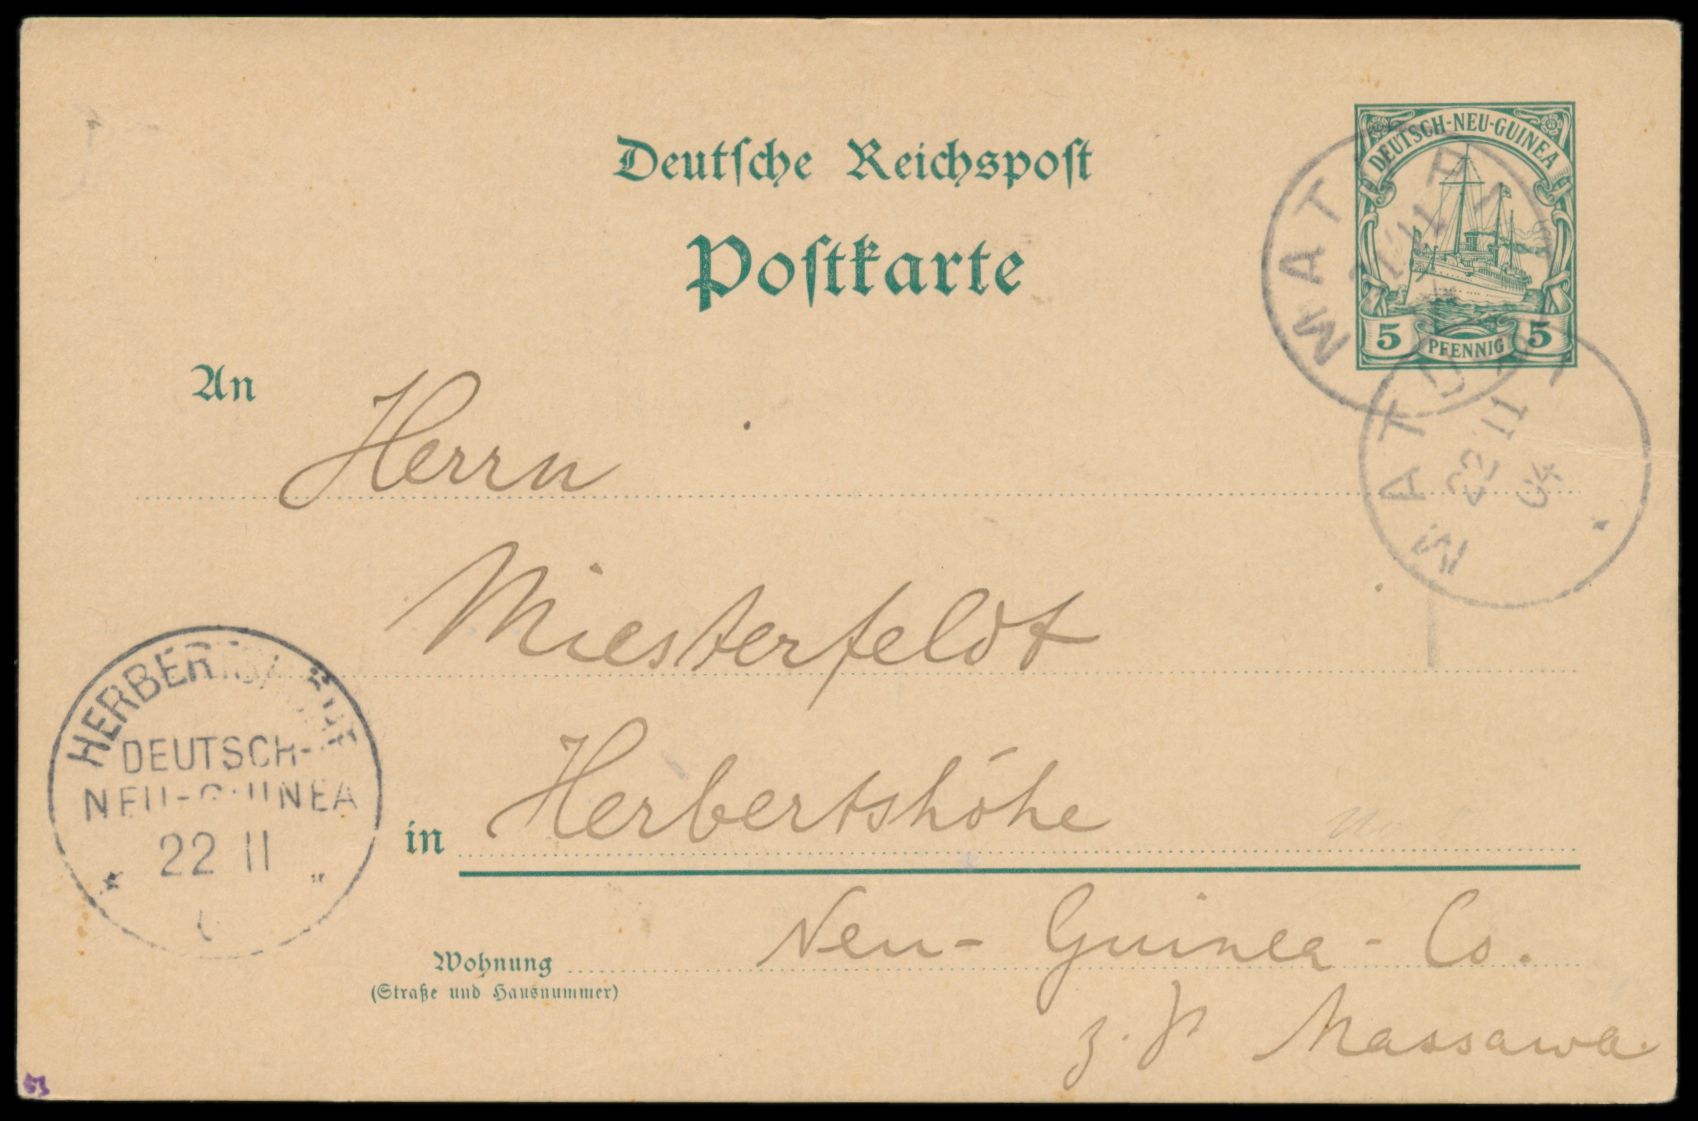 Deutsche Reichspost
Postkarte
DEUTSCH-NEU-GUINEA
5 PFENNIG 5
MATUPI
22 11
04
An
Herrn
Miesterfeldt
in Herbertshöhe
Wohnung Neu-Guinea-Co.
(Straße und Hausnummer)
z. Z. Massawa
HERBERTSHÖHE
DEUTSCH-
NEU-GUINEA
22 11
53